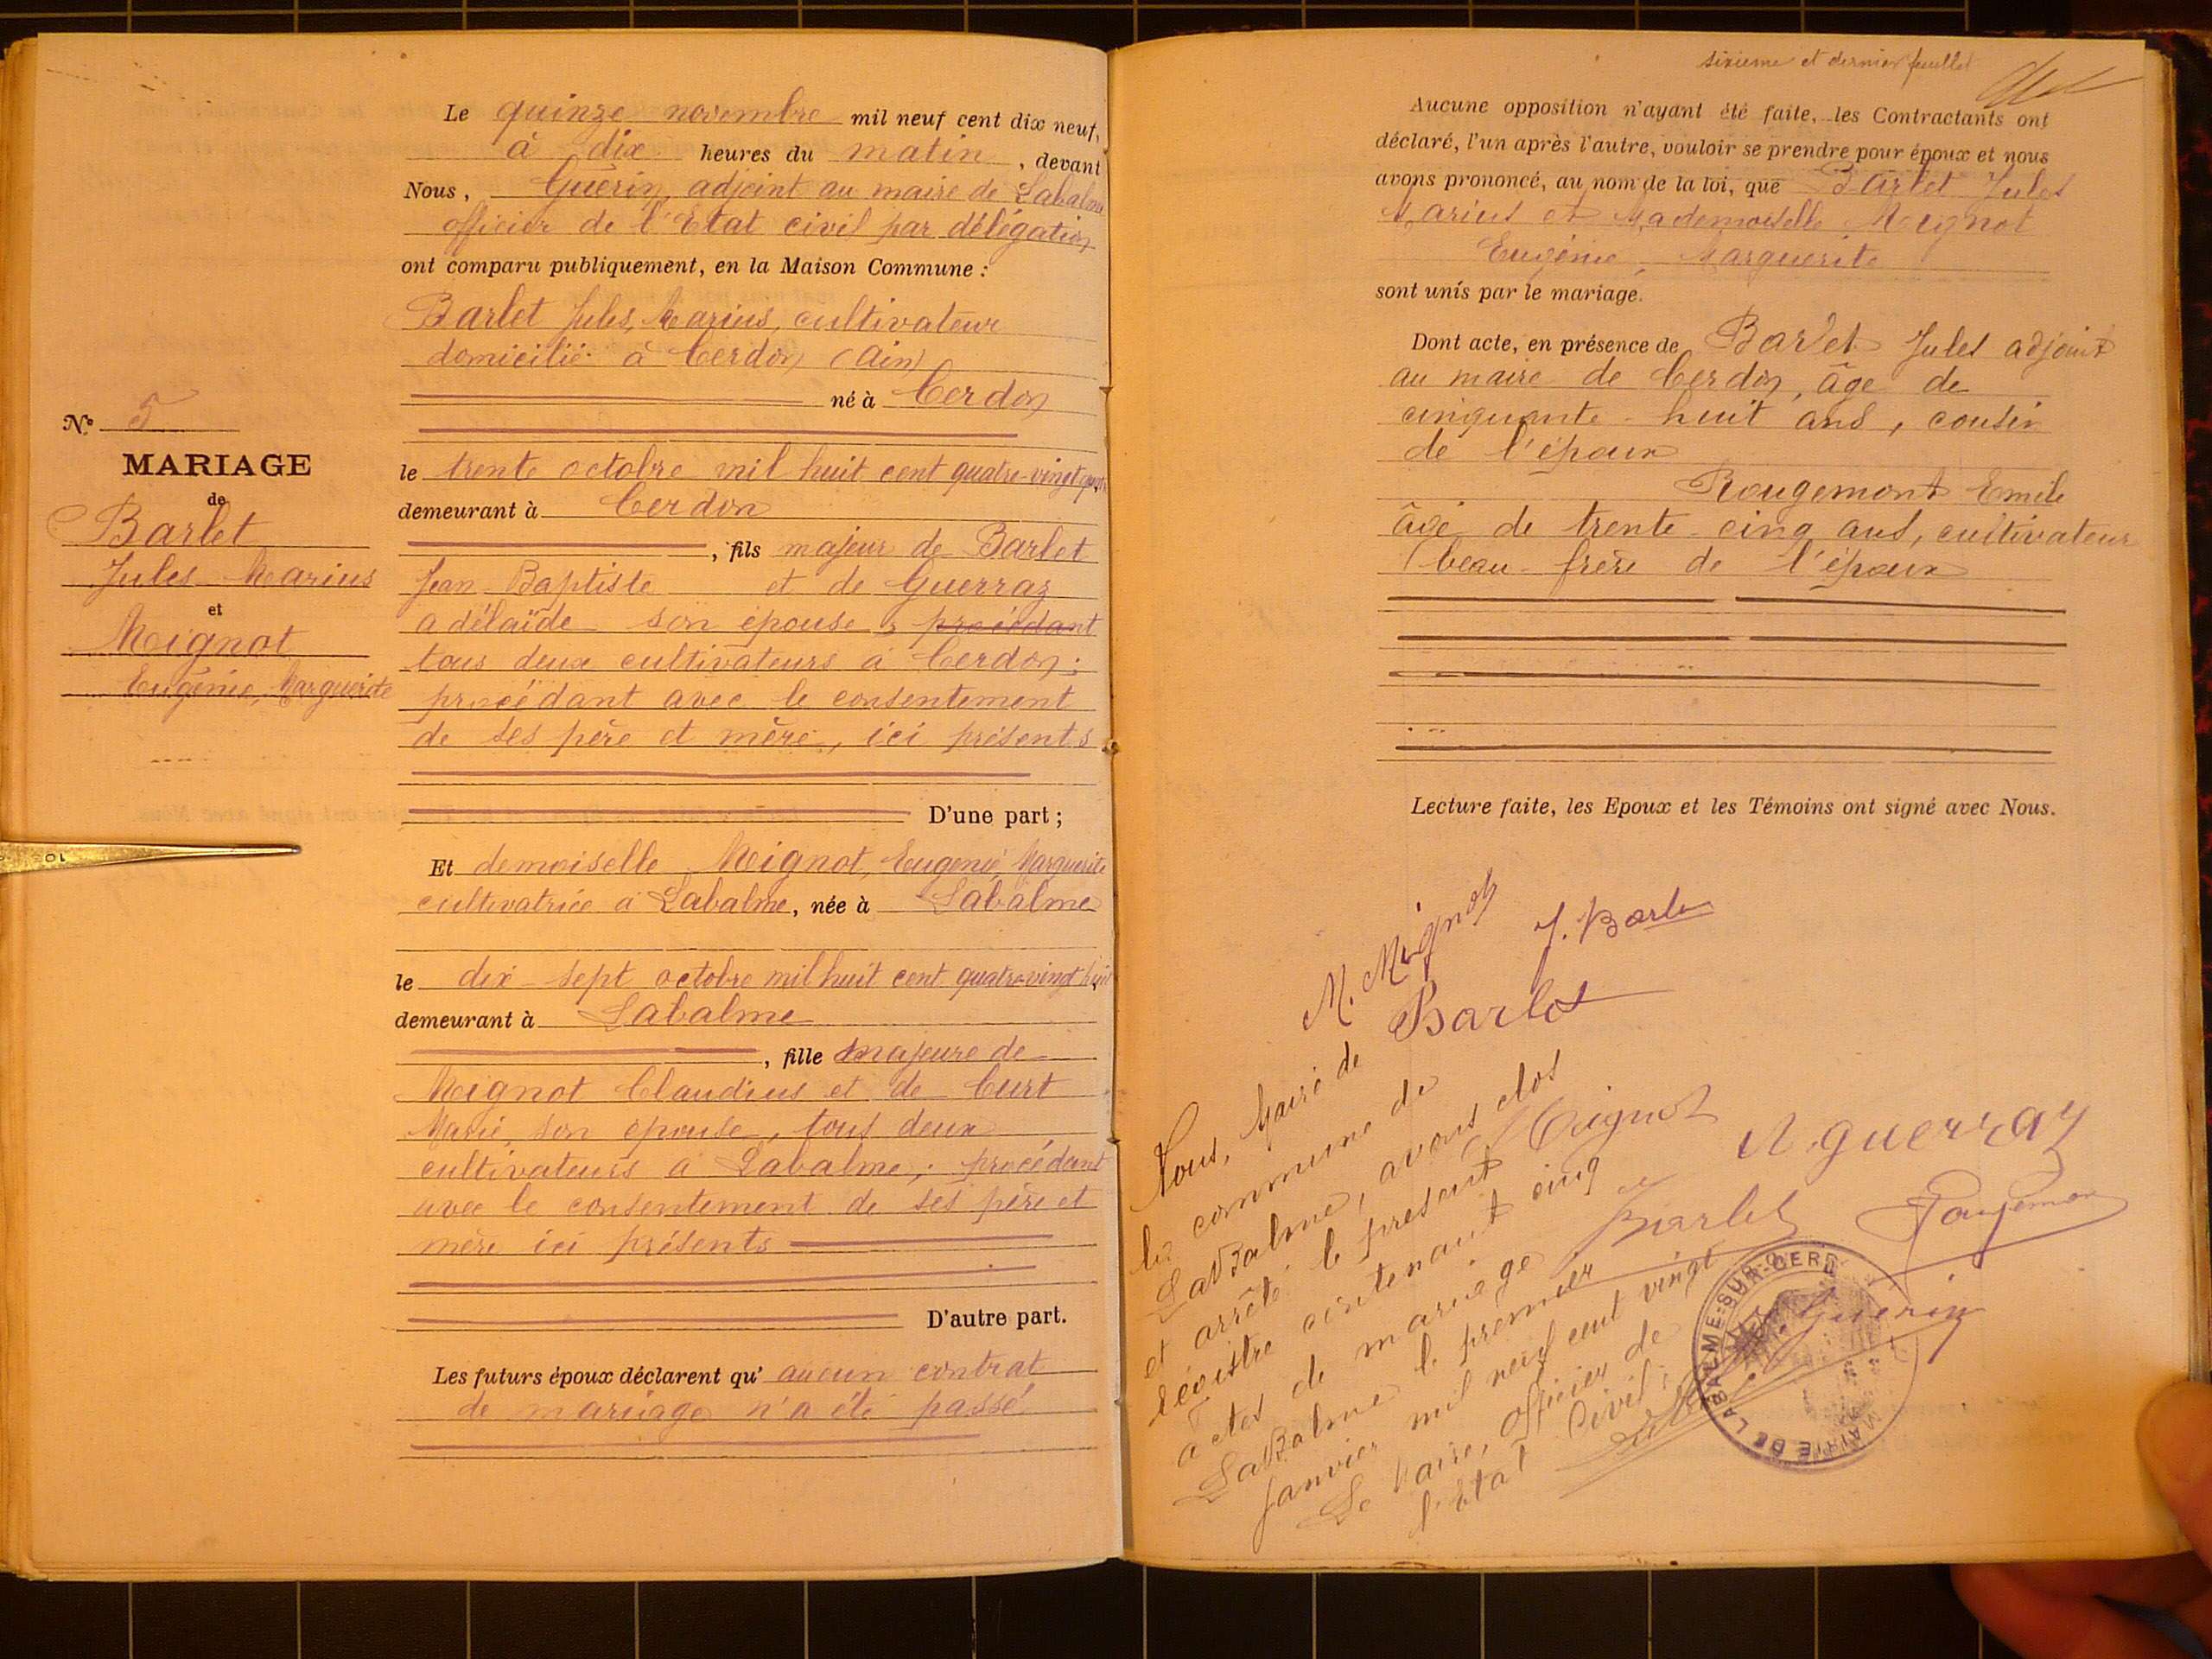 N° 5
MARIAGE
de
Barlet
Jules Marius
et
Mignot
Eugénie, Marguerite
Le quinze novembre mil neuf cent dix neuf,
à dix heures du matin, devant
Nous, Guérin adjoint au maire de Labalme
officier de l'Etat civil par délégation
ont comparu publiquement, en la Maison Commune :
Barlet Jules, Marius, cultivateur
domicilié à Cerdon (Ain)
né à Cerdon
le trente octobre mil huit cent quatre-vingt
demeurant à Cerdon
, fils majeur de Barlet
Jean Baptiste et de Guerraz
adélaïde son épouse, procédant
tous deux cultivateurs à Cerdon ;
procédant avec le consentement
de ses père et mère, ici présents
D'une part ;
Et demoiselle Mignot, Eugénie, Marguerite
cultivatrice à Labalme, née à Labalme
le dix-sept octobre mil huit cent quatre-vingt huit
demeurant à Labalme
, fille majeure de
Mignot Claudius et de Curt
Marie, son épouse, tous deux
cultivateurs à Labalme ; procédant
avec le consentement de ses père et
mère ici présents
D'autre part.
Les futurs époux déclarent qu'aucun contrat
de mariage n'a été passé
sixieme et dernier feuillet
Aucune opposition n'ayant été faite, les Contractants ont
déclaré, l'un après l'autre, vouloir se prendre pour époux et nous
avons prononcé, au nom de la loi, que Barlet Jules
Marius et Mademoiselle Mignot
Eugénie, Marguerite
sont unis par le mariage.
Dont acte, en présence de Barlet Jules adjoint
au maire de Cerdon, âgé de
cinquante-huit ans, cousin
de l'époux
Rougemont Emile
âgé de trente-cinq ans, cultivateur
beau-frère de l'époux
Lecture faite, les Epoux et les Témoins ont signé avec Nous.
M. Mignot
J. Barlet
Barlet
Mignot
A. guerraz
Barlet
Rougemont
Guérin
Nous, Maire de
la commune de
LaBalme, avons clos
et arrêté le présent
régistre contenant cinq
actes de mariage
LaBalme le premier
Janvier mil neuf cent vingt
Le Maire, officier de
l'Etat Civil ;
MAIRIE DE LABALME-SUR-CERDON